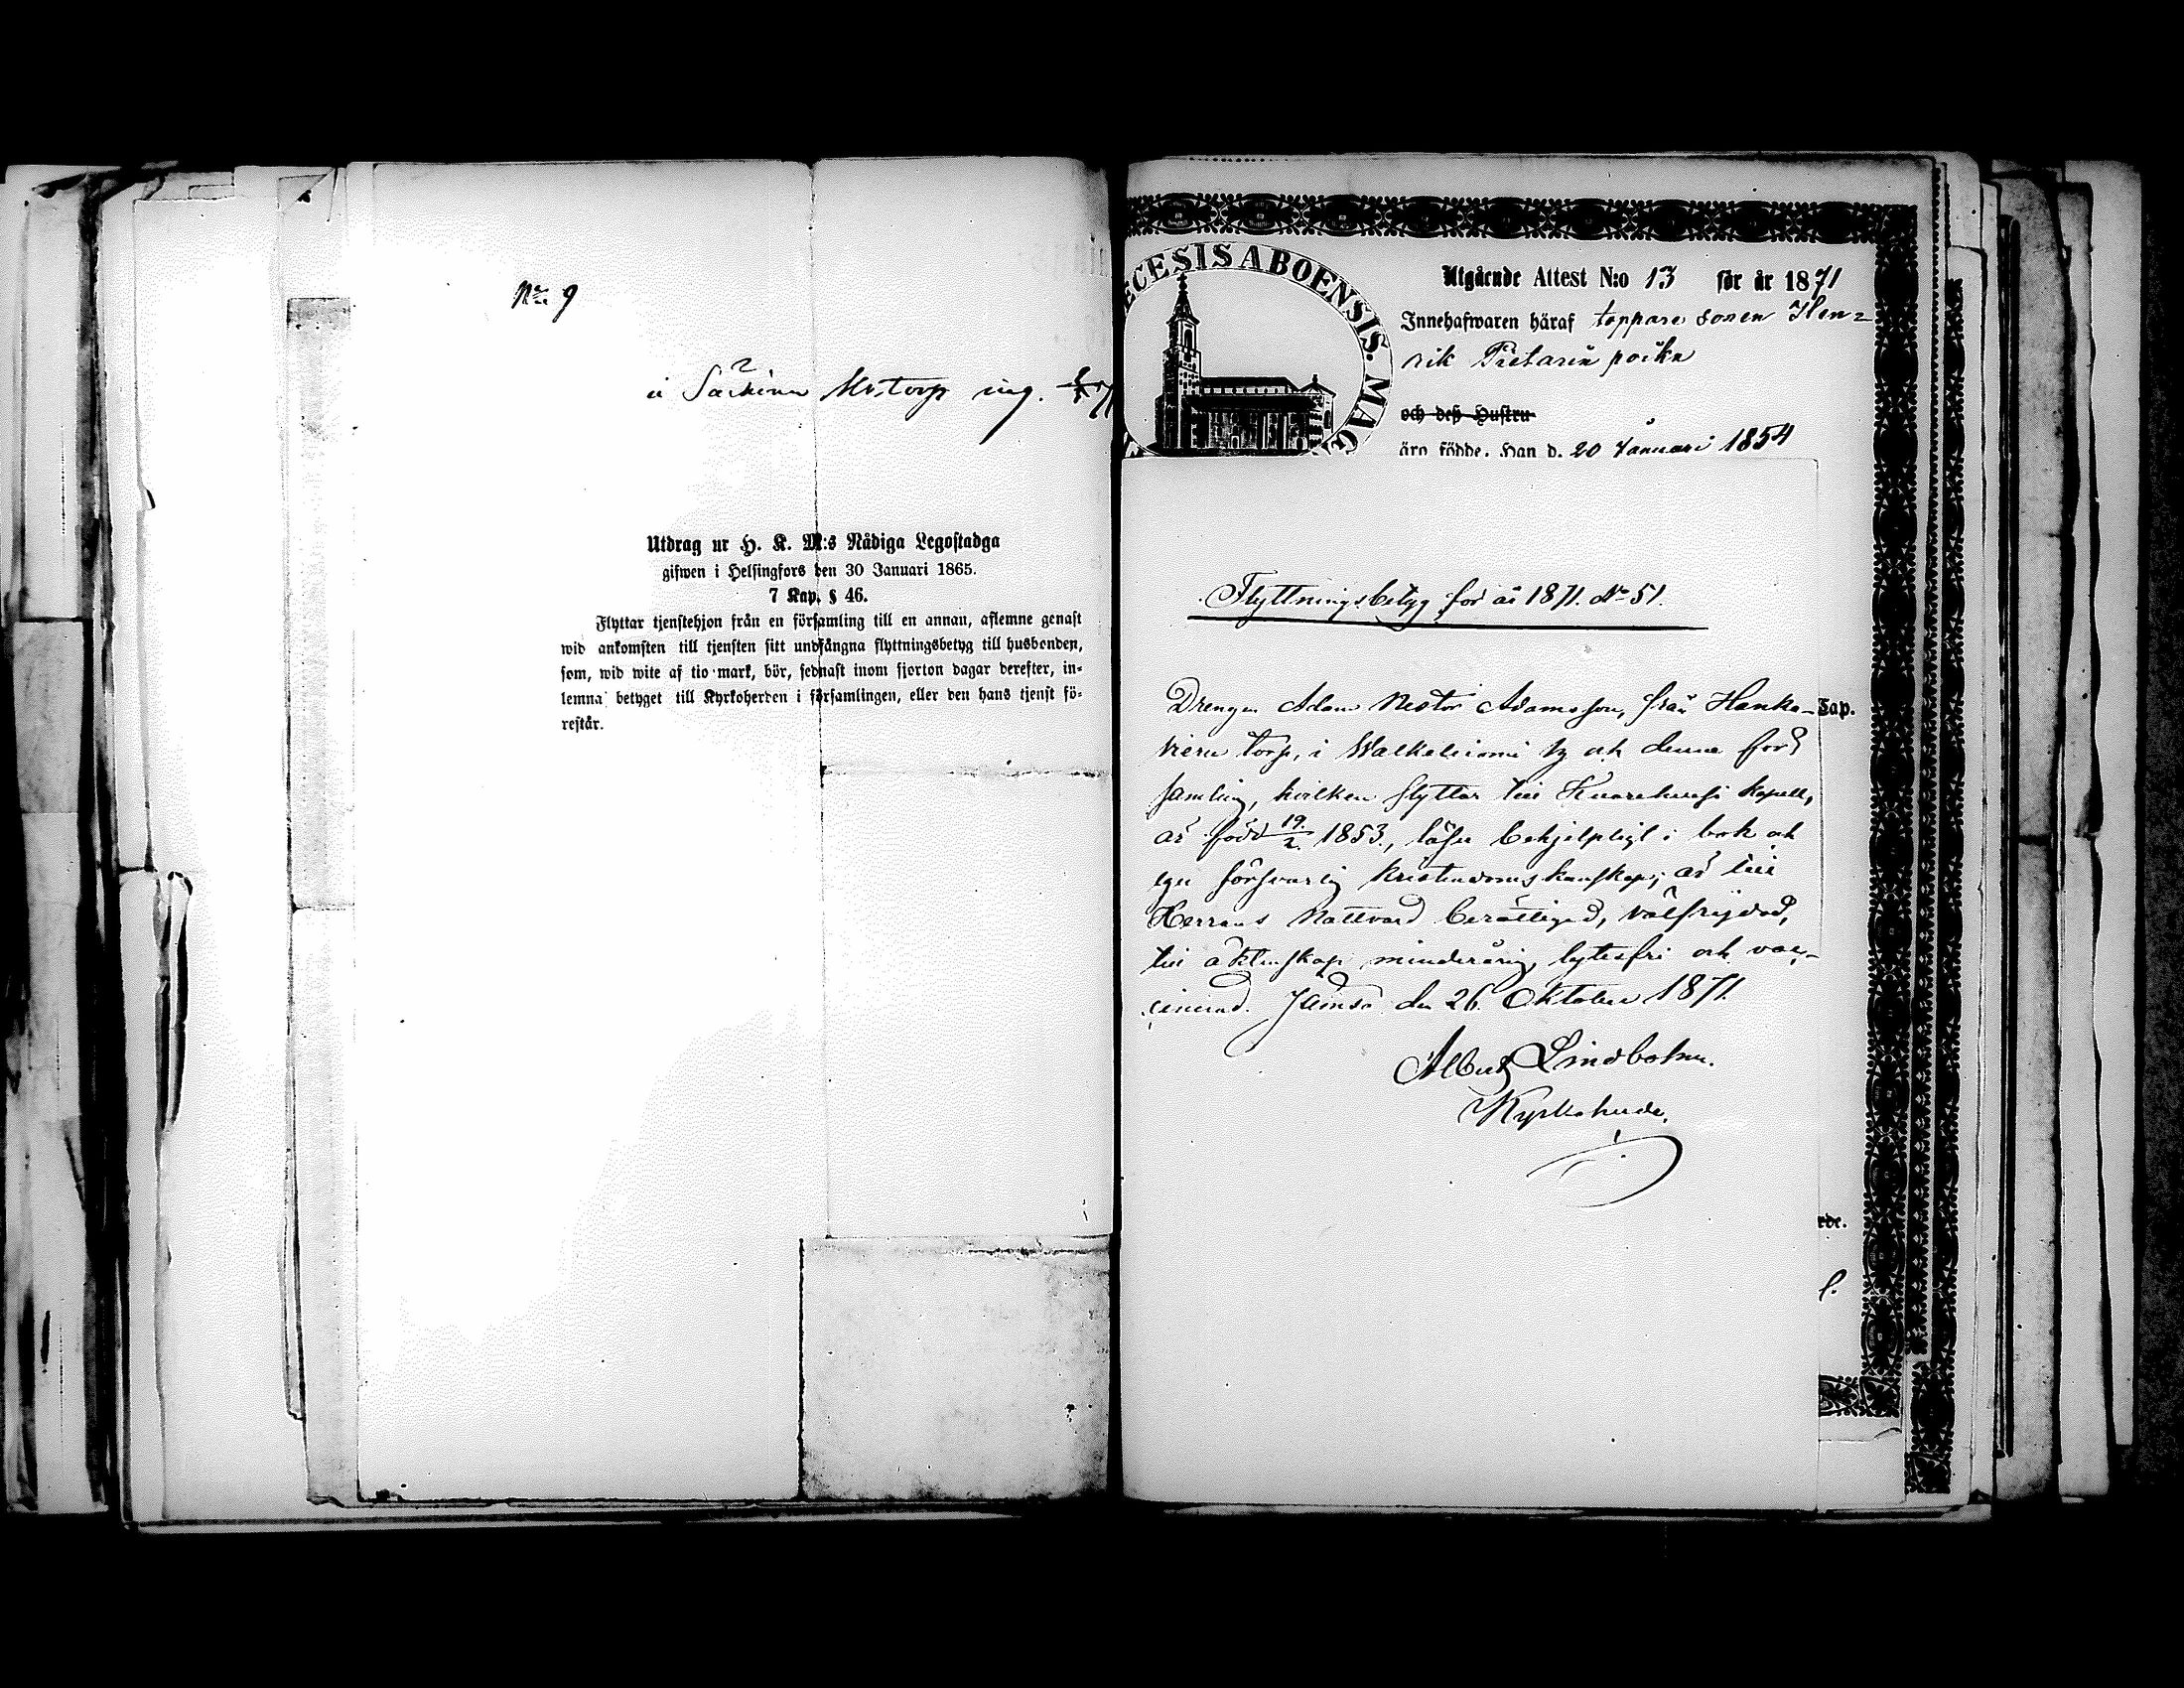 No 9
i Särkinen
torp
Utdrag ur H. K. M:s Nådiga Legostadga
gifwen i Helsingfors den 30 Januari 1865.
7 Kap. § 46.
Flyttar tjenstehjon från en församling till en annan, aflemne genast
wid ankomsten till tjensten sitt undfångna flyttningsbetyg till husbonden,
som, wid wite af tio mark, bör, sednast inom fjorton dagar derefter, in-
lemna betyget till Kyrkoherden i församlingen, eller den hans tjenst fö-
restår.
ECESIS ABOENSIS. MAG
Utgående Attest N:o 13 för år 1871
Innehafwaren häraf toppare sonen Hen=
rik Pietarin poika
och deß Hustru
äro födde, Han d. 20 Januari 1854
Flyttningsbetyg för år 1871. No 51.
Drengen Adam Nestor Adamsson, från Hanka-
Tap.
torp, i by och denna för
samling, hvilken flyttar till kapell,
är född 19/2 1853., läser behjelpligt i bok och
eger försvarlig kristendomskunskap; är till
Herrans Nattvard berättigad, välfrejdad,
till äktenskap minderårig, lytesfri och vac-
cinerad. Jämsä den 26 Oktober 1871.
Albert Lindbohm.
Kyrkoherde.
rde.